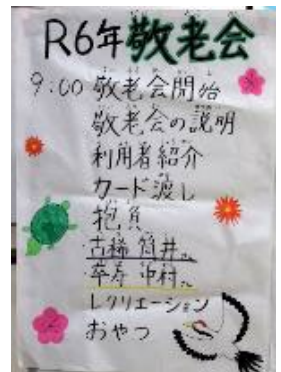 R6年敬老会
9:00 敬老会開始
敬老会の説明
利用者紹介
カード渡し
抱負
古稀 筒井さん
卒寿 中村さん
レクリエーション
おやつ